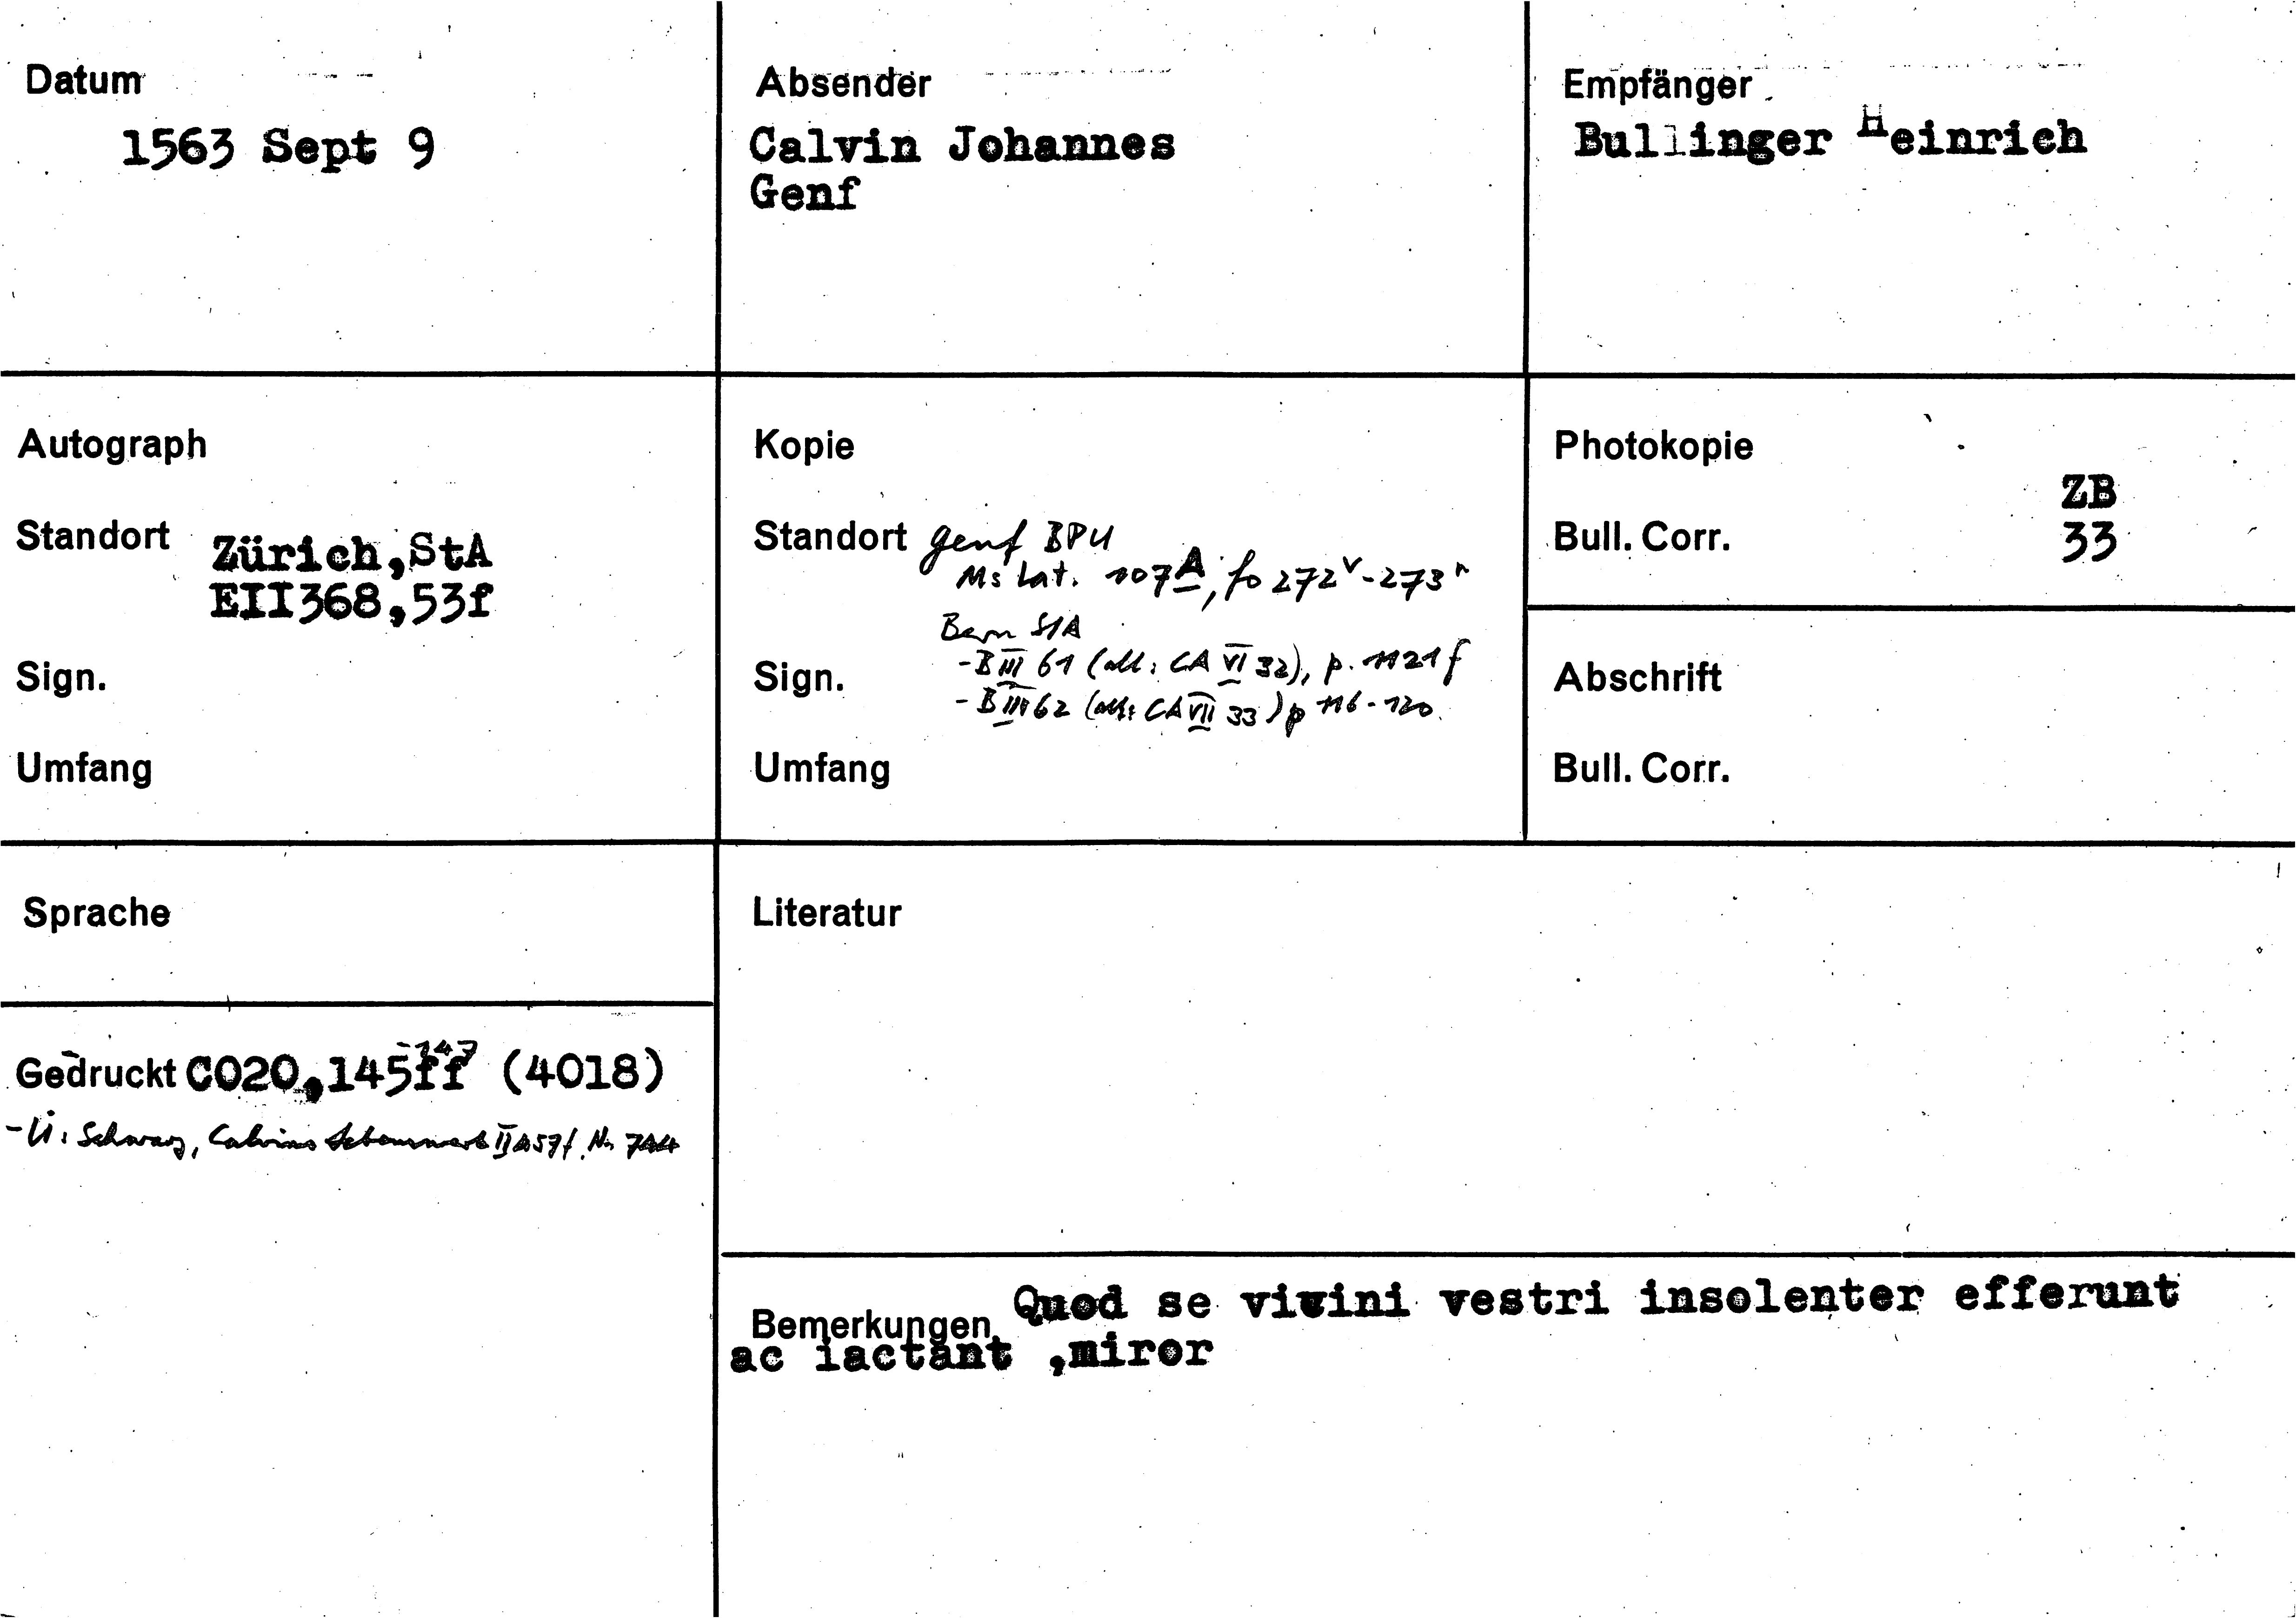 Datum
1563 Sept 9
Absender
Calvin Johannes
Genf
Empfänger
Bullinger Heinrich
Autograph
Standort Zürich,StA
EII368,53f
Sign.
Umfang
Kopie
Standort Genf BPU
Ms Lat. 107A, fo 272v-273r
Bern StA
-B III 61 (alt: CA VI 32), p. 1121f
Sign.
-B III 62 (alt: CA VII 33) p 116-120.
Umfang
Photokopie
ZB
Bull. Corr. 33
Abschrift
Bull. Corr.
Sprache
Gedruckt CO20,145ff -147 (4018)
-Ü: Schwarz, Calvins Lebenswerk II 457f. Nr. 744
Literatur
Bemerkungen Quod se vicini vestri insolenter efferunt
ac iactant ,miror